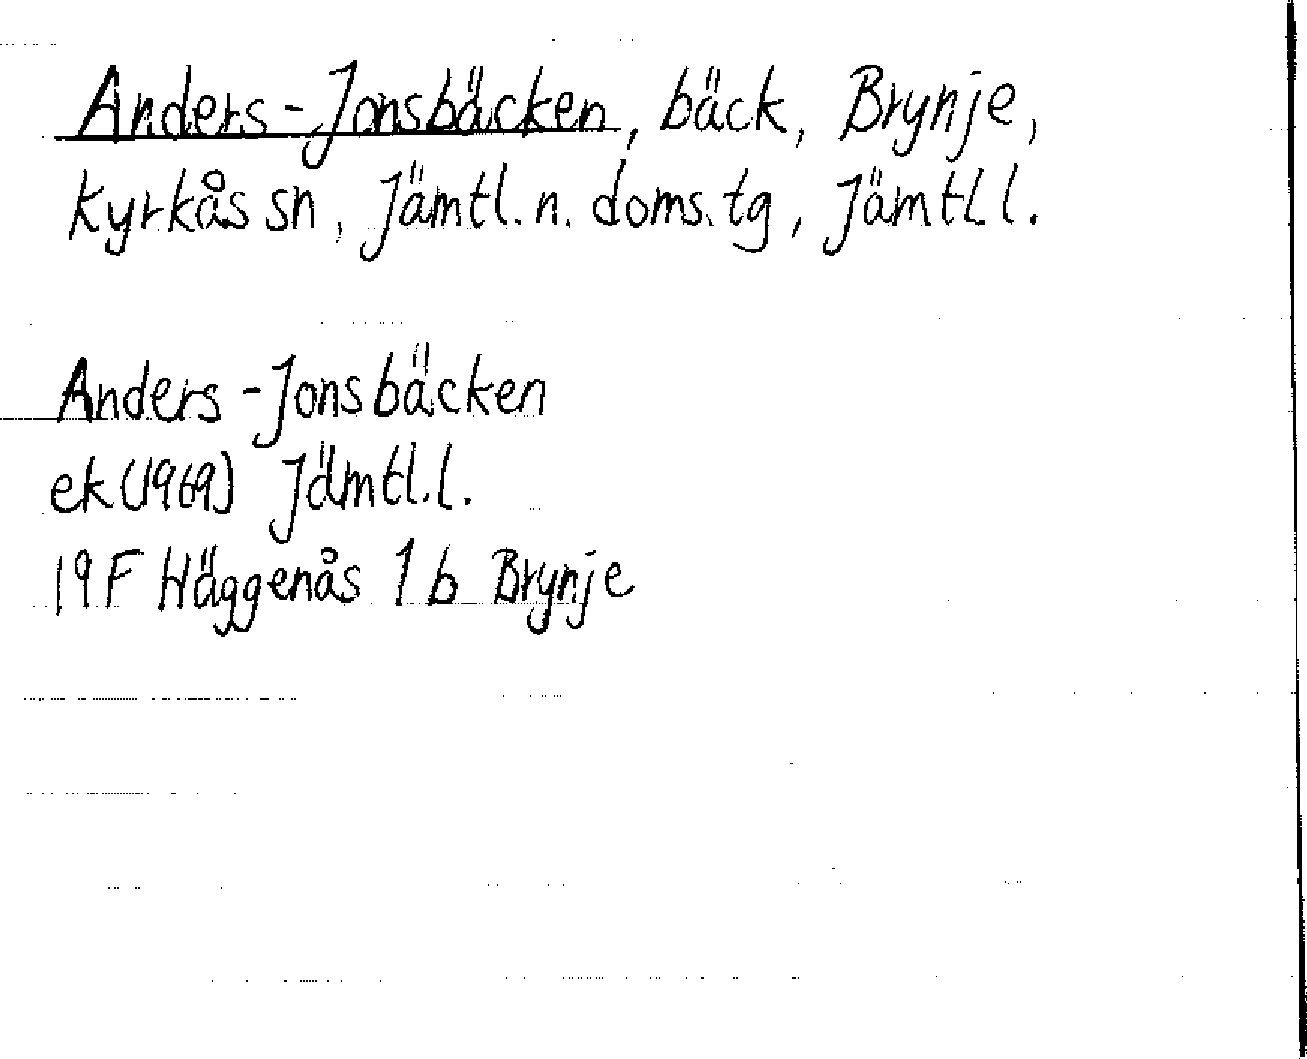 Anders-Jonsbäcken, bäck, Brynje,
Kyrkås sn, Jämtl. n. doms. tg, Jämtl. l.
Anders-Jonsbäcken
ek (1969) Jämtl. l.
19F Häggenås 1b Brynje